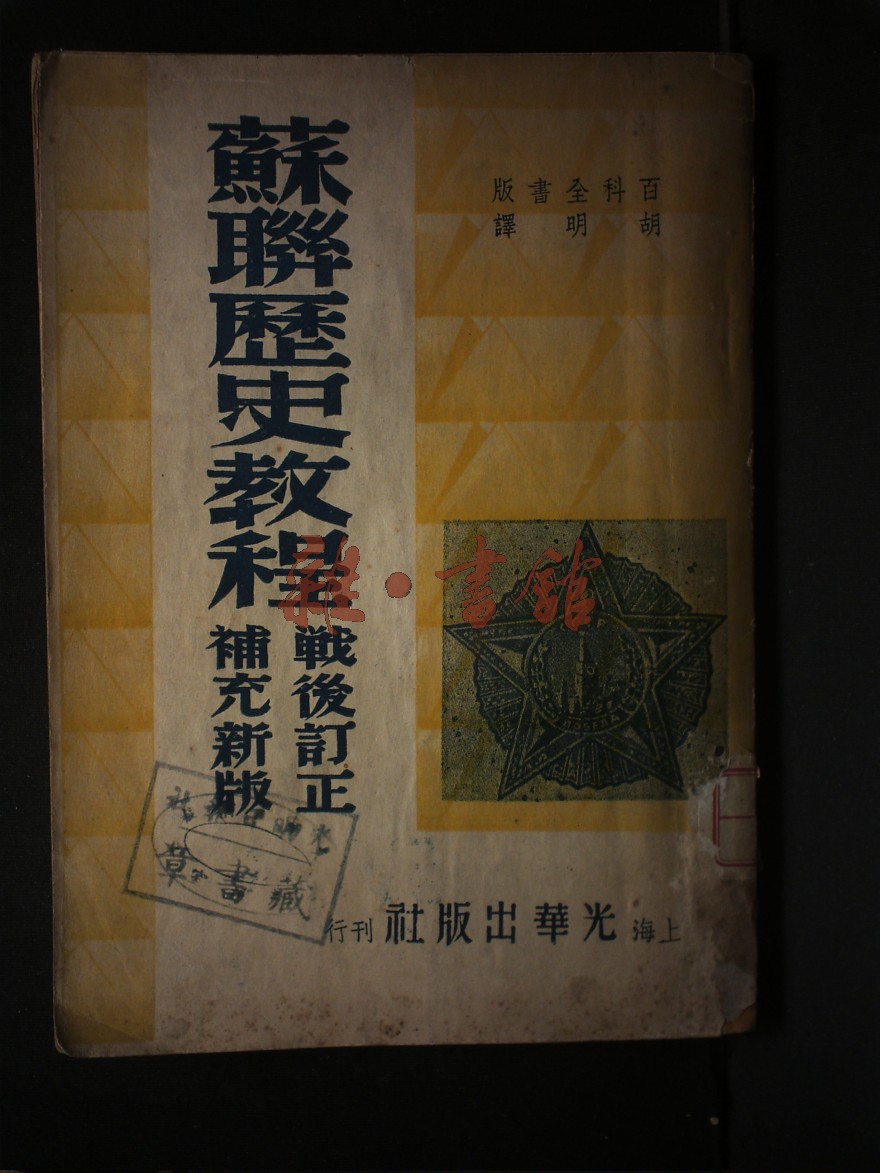 百科全書版
胡明譯
蘇聯歷史教程
戰後訂正
補充新版
雜·書館
藏書章
上海光華出版社刊行